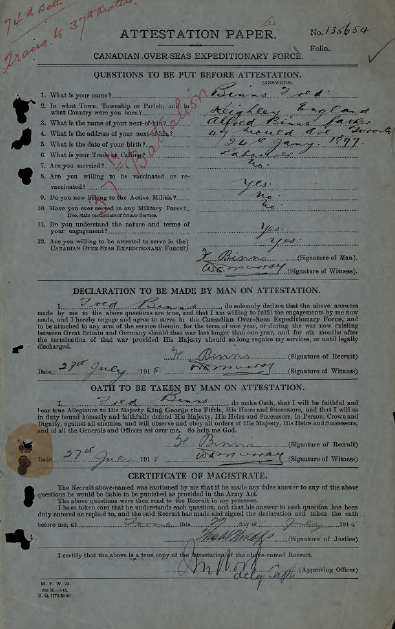 74th Batt.
Trans. to 37th Battn.
ATTESTATION PAPER.
No. 135654
Folio.
CANADIAN OVER-SEAS EXPEDITIONARY FORCE.
QUESTIONS TO BE PUT BEFORE ATTESTATION.
(ANSWERS)
1. What is your name? Binns Fred
2. In what Town, Township or Parish, and in what Country were you born? Keighley England
3. What is the name of your next-of-kin? Alfred Binns father
4. What is the address of your next-of-kin? Ave Toronto
5. What is the date of your birth? 24th Jany. 1897
6. What is your Trade or Calling? Labourer
7. Are you married? No
8. Are you willing to be vaccinated or re-vaccinated? Yes
9. Do you now belong to the Active Militia? No
10. Have you ever served in any Military Force? No
If so, state particulars of former Service.
11. Do you understand the nature and terms of your engagement? Yes
12. Are you willing to be attested to serve in the CANADIAN OVER-SEAS EXPEDITIONARY FORCE? Yes
37th Battalion
F. Binns (Signature of Man).
(Signature of Witness).
DECLARATION TO BE MADE BY MAN ON ATTESTATION.
I, Fred Binns, do solemnly declare that the above answers
made by me to the above questions are true, and that I am willing to fulfil the engagements by me now
made, and I hereby engage and agree to serve in the Canadian Over-Seas Expeditionary Force, and
to be attached to any arm of the service therein, for the term of one year, or during the war now existing
between Great Britain and Germany should that war last longer than one year, and for six months after
the termination of that war provided His Majesty should so long require my services, or until legally
discharged.
F Binns (Signature of Recruit)
Date 27th July 1915 (Signature of Witness)
OATH TO BE TAKEN BY MAN ON ATTESTATION.
I, Fred Binns, do make Oath, that I will be faithful and
bear true Allegiance to His Majesty King George the Fifth, His Heirs and Successors, and that I will as
in duty bound honestly and faithfully defend His Majesty, His Heirs and Successors, in Person, Crown and
Dignity, against all enemies, and will observe and obey all orders of His Majesty, His Heirs and Successors,
and of all the Generals and Officers set over me. So help me God.
F Binns (Signature of Recruit)
Date 27th July 1915 (Signature of Witness)
CERTIFICATE OF MAGISTRATE.
The Recruit above-named was cautioned by me that if he made any false answer to any of the above
questions he would be liable to be punished as provided in the Army Act.
The above questions were then read to the Recruit in my presence.
I have taken care that he understands each question, and that his answer to each question has been
duly entered as replied to, and the said Recruit has made and signed the declaration and taken the oath
before me, at this day of July 191
(Signature of Justice)
I certify that the above is a true copy of the Attestation of the above-named Recruit.
(Approving Officer)
M. F. W. 23.